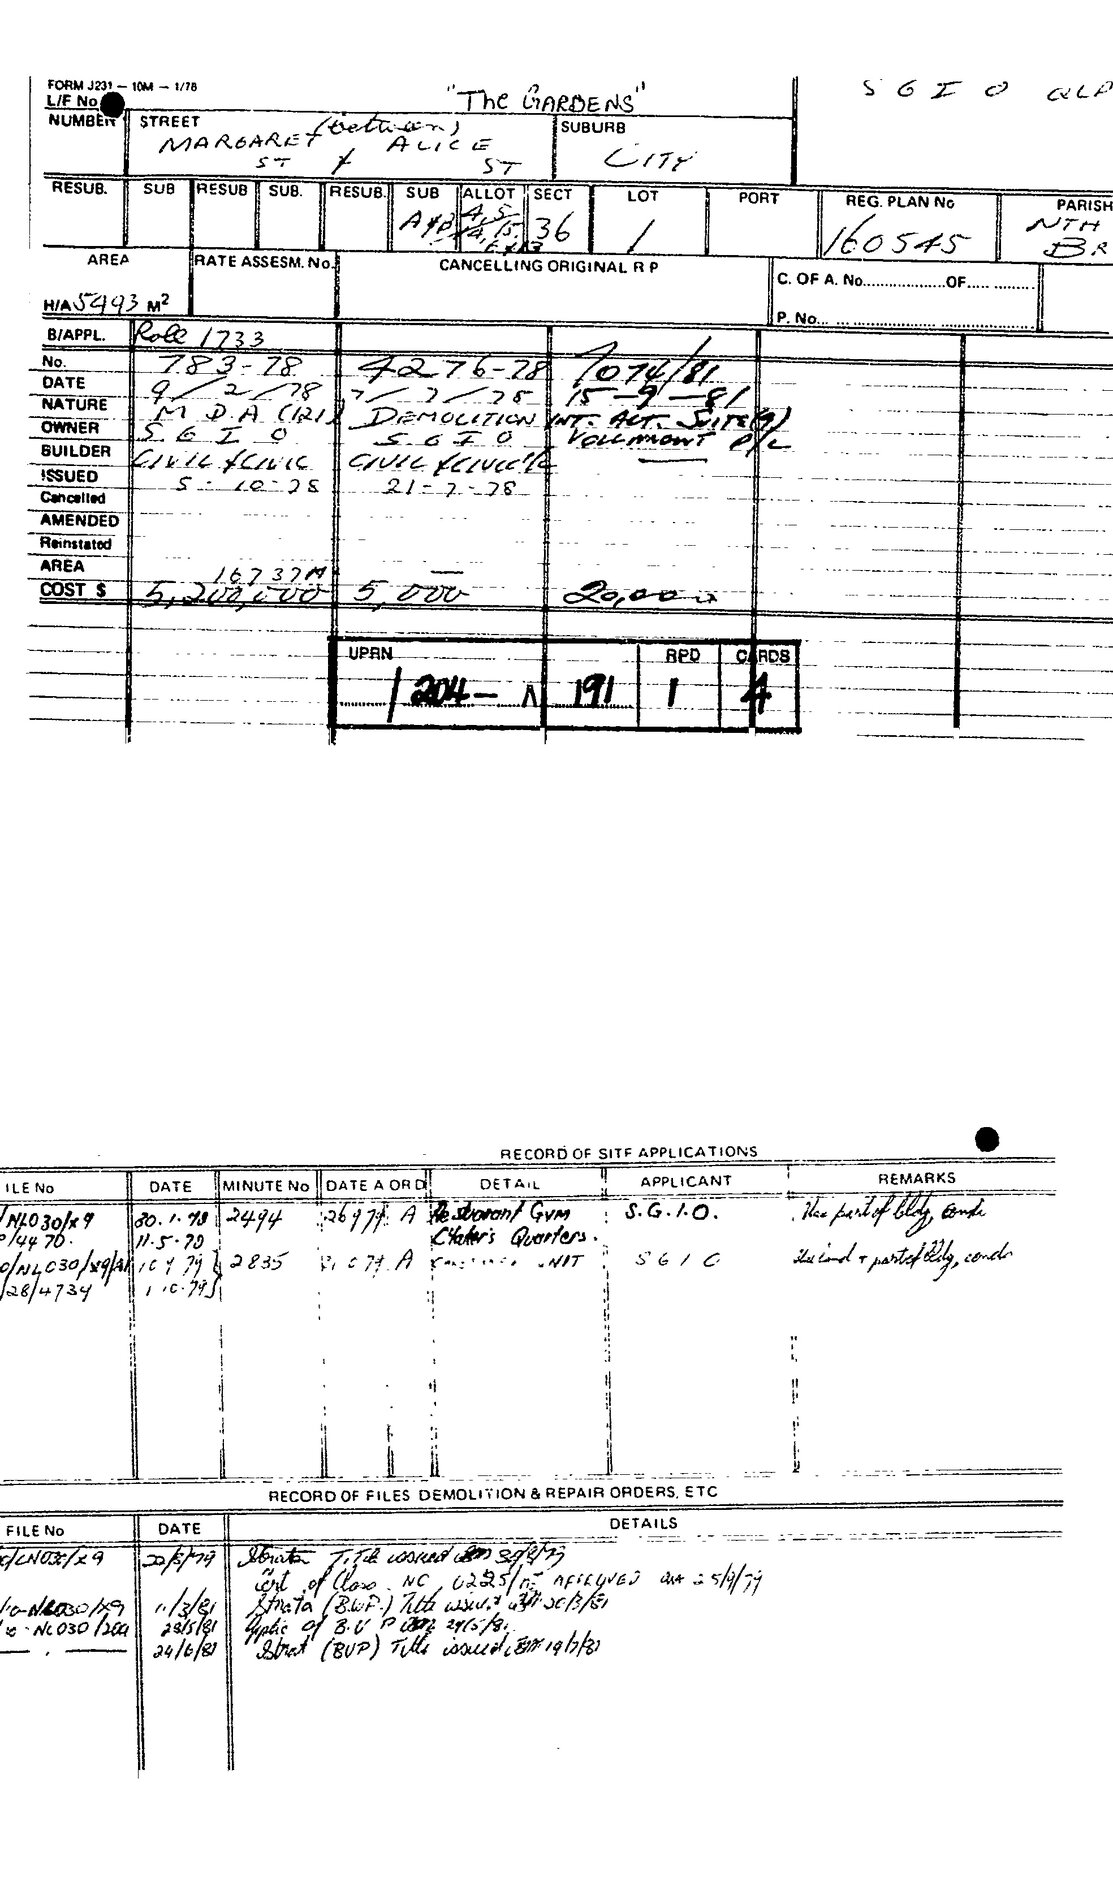 FORM J231 — 10M — 1/78
L/F No
"The GARDENS"
S G I O QLD
NUMBER STREET SUBURB
(between)
MARGARET ALICE CITY
ST & ST
RESUB. SUB RESUB SUB. RESUB. SUB ALLOT SECT LOT PORT REG. PLAN No PARISH
A&B 4, 5 36 1 160545 NTH
BR
AREA RATE ASSESM. No. CANCELLING ORIGINAL R P
C. OF A. No.................OF..... .........
H/A 5493 M2
P. No... ..................................
B/APPL. Role 1733
No. 783-78 4276-78 7074/81
DATE 9/2/78 7/7/78 15-9-81
NATURE M D A (121) DEMOLITION INT. ALT. SUITE(9)
OWNER S G I O S G I O VOLLMOUNT P/L
BUILDER CIVIL & CIVIC CIVIL & CIVIC P/L
ISSUED 5-10-78 21-7-78
Cancelled
AMENDED
Reinstated
AREA 16737M —
COST $ 5,200,000 5,000 20,000
UPRN RPD CARDS
1204 - A 191 1 4
RECORD OF SITE APPLICATIONS
ILE No DATE MINUTE No DATE A OR D DETAIL APPLICANT REMARKS
/NL030/x9 30.1.79 2494 26979 A Restaurant Gym S.G.I.O. Use part of bldg, conds
/4470. 11.5.79 C'taker's Quarters.
0/NL030/x9/ 10 7 79 2835 1079 A UNIT S G I O Use land + part of bldg, conds
28/4734 1.10.79
RECORD OF FILES DEMOLITION & REPAIR ORDERS, ETC
FILE No DATE DETAILS
/LN030/x9 22/8/79 Strata Title issued 30/8/79
Cert. of Class. NC 0225/ APPROVED 25/9/79
NL030/x9 11/3/81 Strata (B.U.P.) Title issued 20/3/81
NL030/200 28/5/81 Applic of B.U.P 29/5/81.
— . — 24/6/81 Strat (BUP) Title issued 19/7/81